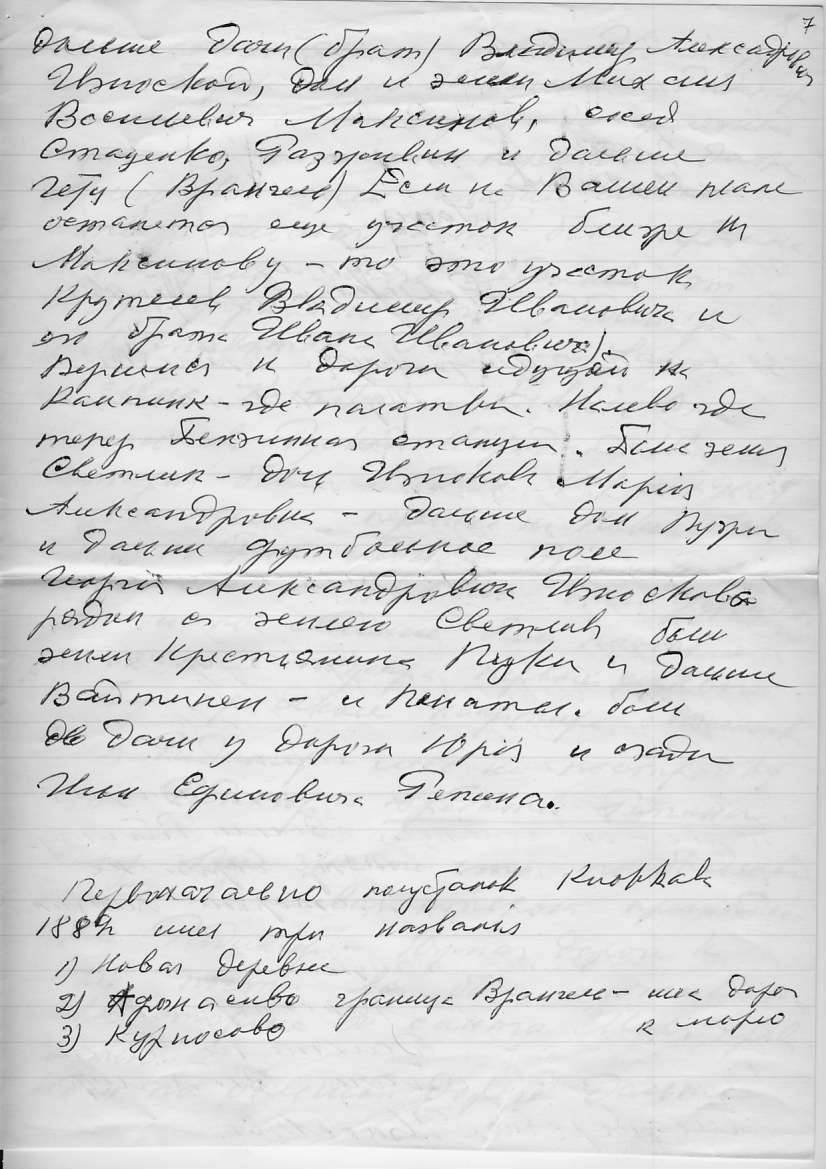 7
дальше Дачи (брат) Владимир Александрович
Изноской, дом и земли Михаил
Васильевич Максимов,
Стаценко, и дальше
Гету (Врангель) Если на Вашем плане
останется еще участок ближе к
Максимову – то это участок
Крутелев Владимир Ивановича и
его брата Ивана Ивановича).
Вернемся к дороги идущей на
Кемпинг – где палатки. Налево где
теперь Бензинная станция. Была земля
Светлик – доч Износкова Марія
Александровна – дальше дом Пузри
и дальше футбольное поле
Георгія Александровича Износкова
рядом с землею Светлик были
земли Крестьянина Пукки и дальше
Вайтинен – и Пенаты. были
две Дачи у дороги Юрія и сзади
Ильи Ефимовича Репина.
Первоначально полустанок Куоккала
1889 г имел три названія
1) Новая деревня
2) Афонасиво граница Врангель – шла дорога
к морю
3) Курносово